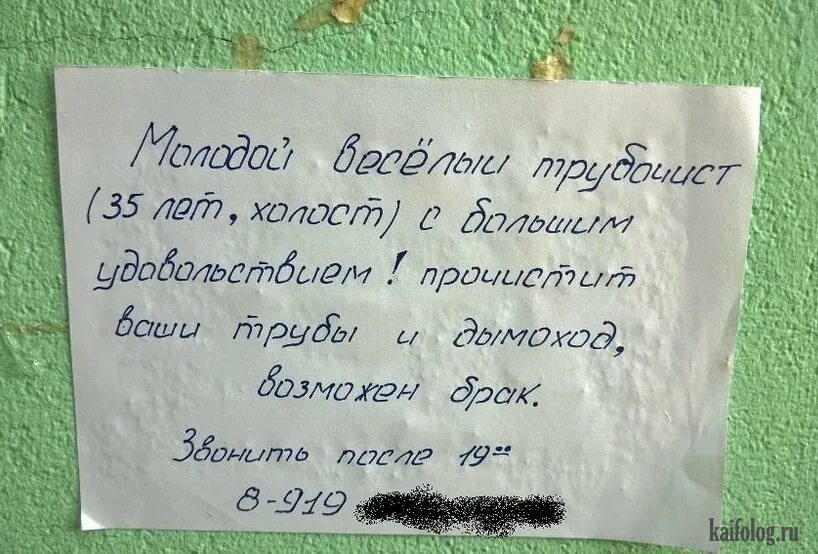 Молодой весёлый трубочист
(35 лет, холост) с большим
удовольствием! прочистит
ваши трубы и дымоход,
возможен брак.
Звонить после 19⁰⁰
8-919
kaifolog.ru